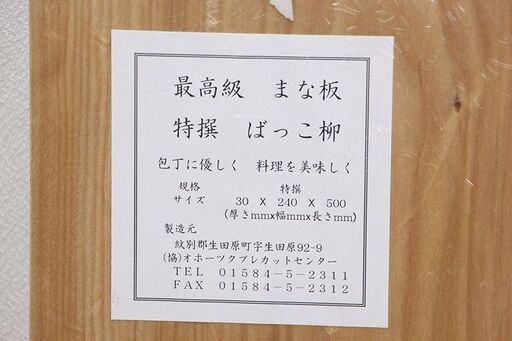 最高級　まな板
特撰　ばっこ柳
包丁に優しく　料理を美味しく
規格　特撰
サイズ　30 X 240 X 500
(厚さmmx幅mmx長さmm)
製造元
紋別郡生田原町字生田原92-9
(協)オホーツクプレカットセンター
ＴＥＬ　０１５８４－５－２３１１
ＦＡＸ　０１５８４－５－２３１２